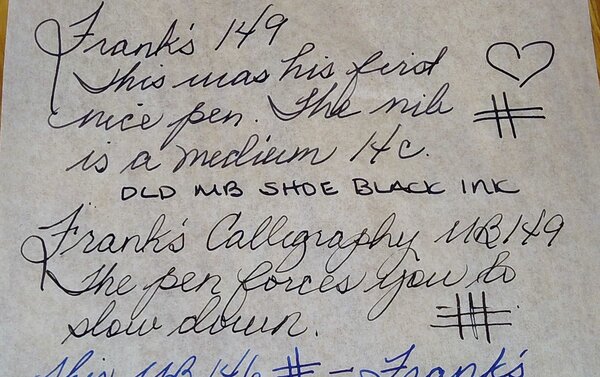 Frank's 149
This was his first
nice pen. The nib
is a medium 14c.
OLD MB SHOE BLACK INK
Frank's Calligraphy MB149
The pen forces you to
slow down.
This MB 146 # - Frank's